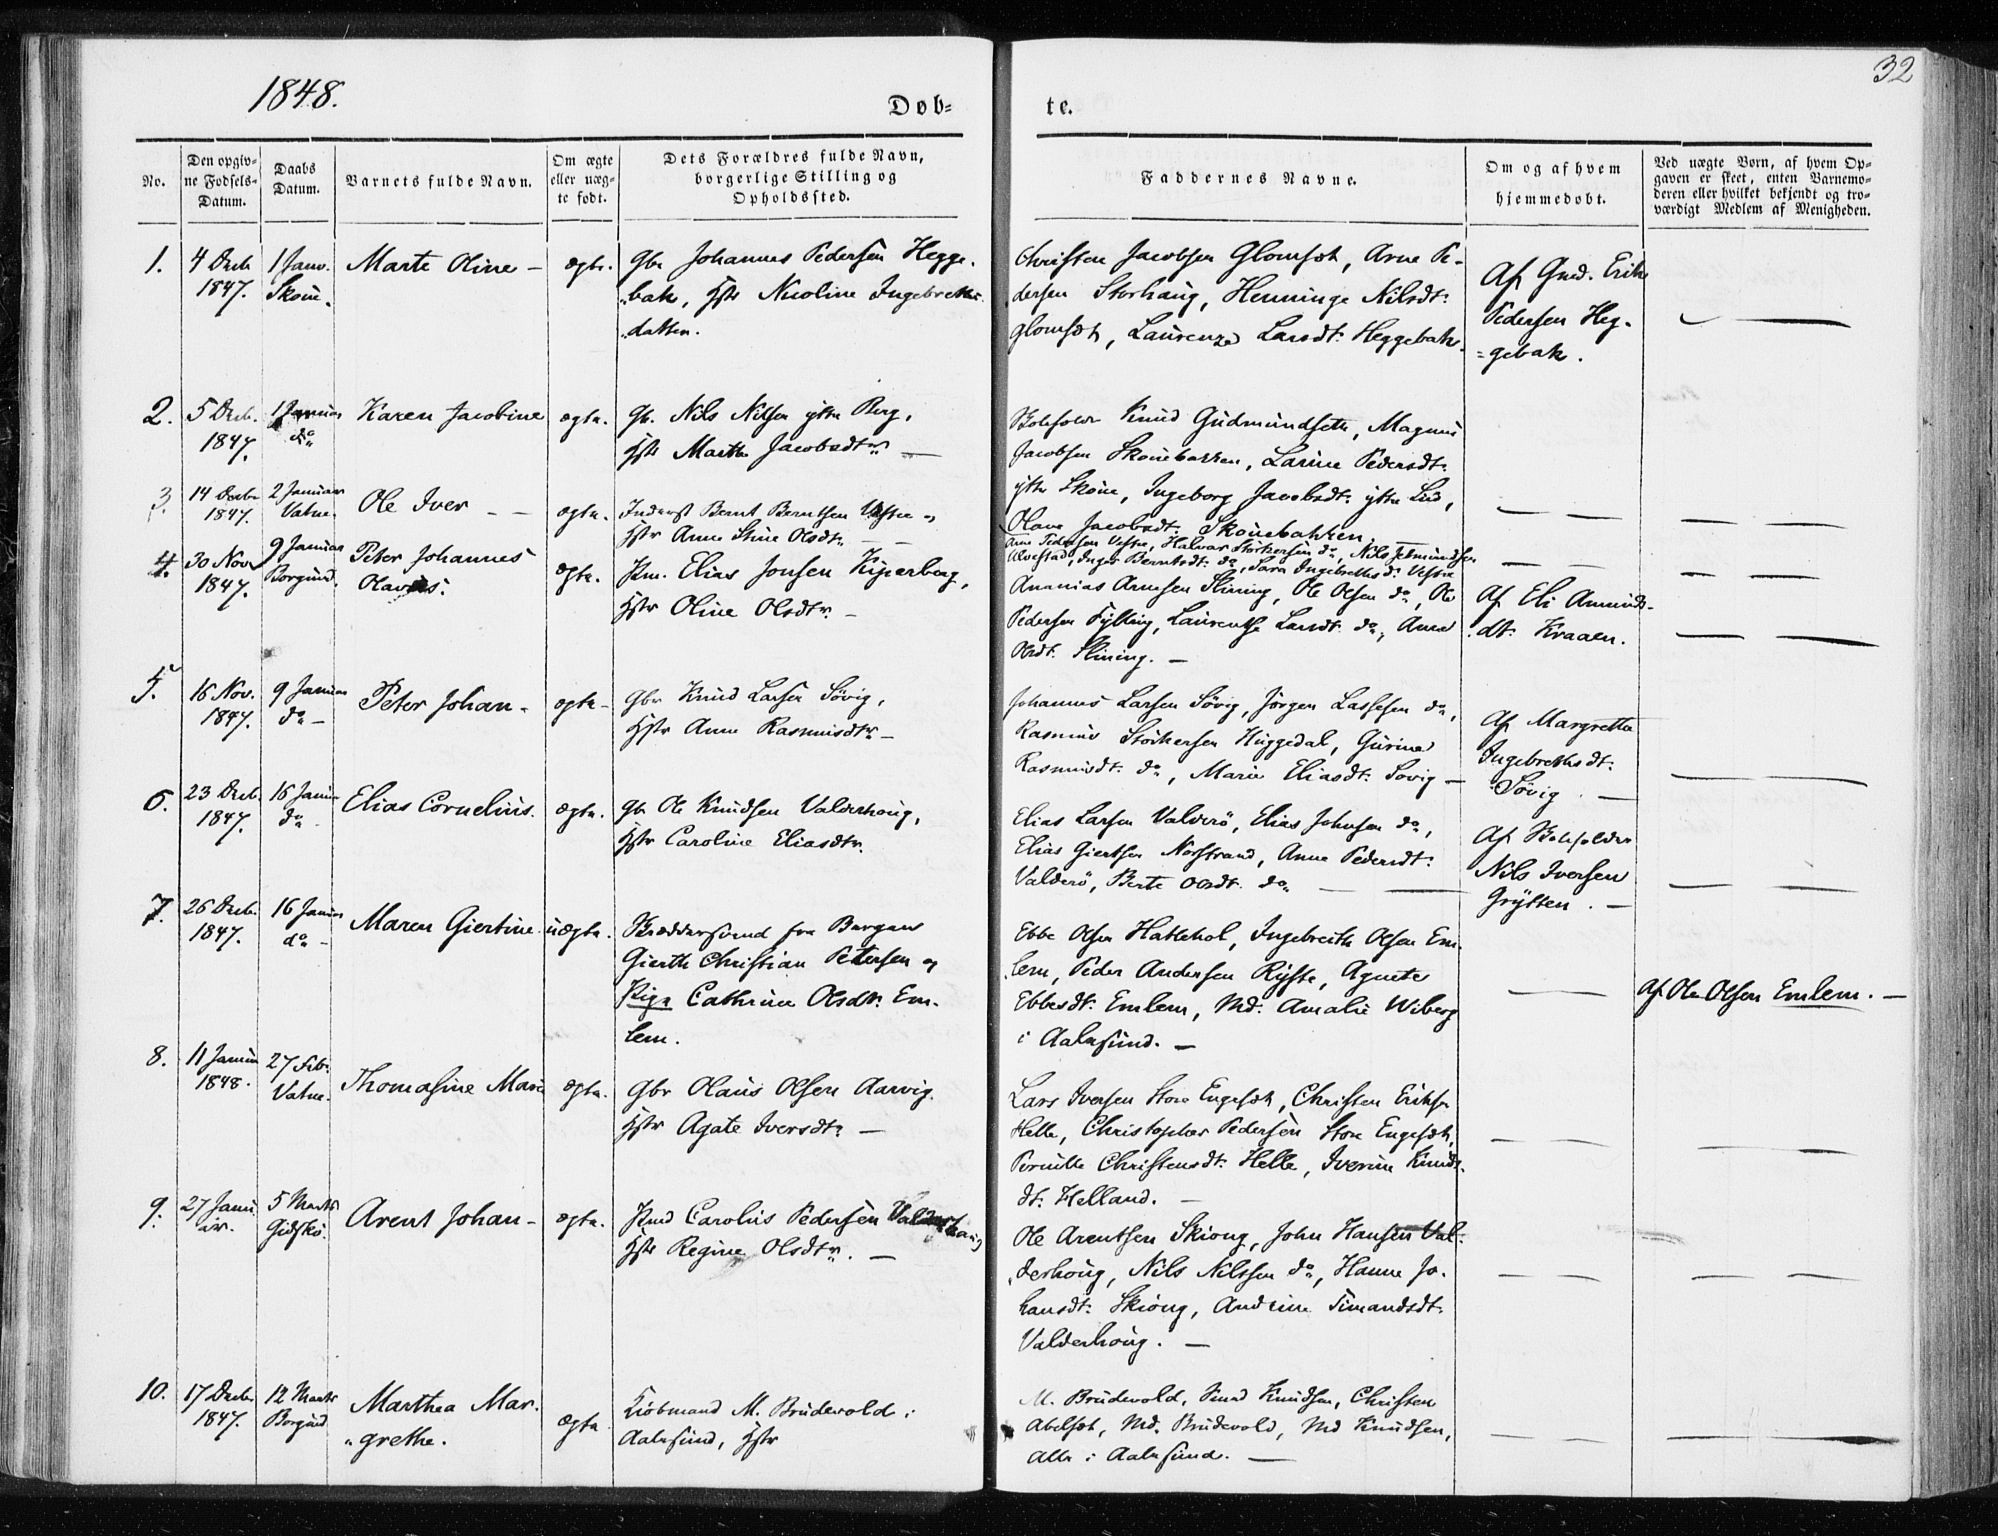 1848.
32
Døb-
te.
No.
Den opgiv-
ne Fødsels-
Datum.
Daabs
Datum.
Barnets fulde Navn.
Om ægte
eller uæg-
te født.
Dets Forældres fulde Navn,
borgerlige Stilling og
Opholdssted.
Faddernes Navne.
Om og af hvem
hjemmedøbt.
Ved uægte Børn, af hvem Op-
gaven er skeet, enten Barnemo-
deren eller hvilket bekjendt og tro-
værdigt Medlem af Menigheden.
1.
4 Decb
1847.
1 Janv.
Skoue.
Marte Oline —
ægte.
Gbr Johannes Pedersen Hegge-
bak, Hstr Nicoline Ingebretts
datter.
Christen Jacobsen Glomset, Arne Pe-
dersen Storhaug, Henninge Nilsdt:
Glomset, Laurenze Larsdt: Heggebak.
Af Gmd. Erik
Pedersen Heg-
gebak.
2.
5 Decb.
1847.
1 Januar
do
Karen Jacobine
ægte.
Gb. Nils Nilsen ytre Berg,
Hstr Marthe Jacobsdtr —
Knud Gudmundseth, Magnus
Jacobsen Skouebakken, Larine Pedersdt:
ytre Skoue, Ingeborg Jacobsdt: ytre Lid,
Olave Jacobsdt: Skouebakken.
3.
14 Decbr
1847.
2 Januar
Vatne.
Ole Iver — —
ægte.
Inderst Bernt Berntsen Vestre
Hstr Anne Stine Olsdt: —
Arne Pedersen Vestre, Halvar Storkersen do, Nils
Ulvestad, Inger Berntsdt: do, Sara Ingebretsd: Vestre
4.
30 Nov
1847.
9 Januar
Borgund.
Peter Johannes
Olavus.
ægte.
Hmd. Elias Jonsen Kiperberg,
Hstr Oline Olsdtr. —
Ananias Arnesen Slining, Ole Olsen do, Ole
Pedersen Fylling, Laurentse Larsdt: do, Anne
Olsdt: Slining. —
Af Eli Amunds-
dt: Kraaen.
5.
16 Nov.
1847.
9 Januar
do —
Peter Johan —
ægte —
Gbr Knud Larsen Søvig,
Hstr Anne Rasmusdtr —
Johannes Larsen Søvig, Jørgen Lassesen do,
Rasmus Storkersen Huggedal, Gurine
Rasmusdt: do, Marie Eliasdt: Søvig —
Af Margrethe
Ingebrethsdt:
Søvig. —
6.
23 Decb.
1847.
16 Januar
do
Elias Cornelius.
ægte.
Gbr Ole Knudsen Valderhoug,
Hstr Caroline Eliasdtr.
Elias Larsen Valderø, Elias Johnsen do,
Elias Giertsen Norstrand, Anne Pedersdt:
Valderø, Berte Olsdt: do —
Af
Nils Iversen
Grytten. —
7.
26 Decb.
1847.
16 Januar
do —
Maren Giertine
uægte.
fra Bergen
Gierth Christian Petersen og
Pige Cathrine Olsdt: Em-
lem.
Ebbe Olsen Hatlehol, Ingebreith Olsen Em-
lem, Peder Andersen Ryste, Agnete
Ebbesdt: Emlem, Md: Amalie Wiberg
i Aalesund. —
Af Ole Olsen Emlem. —
8.
11 Januar
1848.
27 Feb:
Vatne.
Thomasine Marie
ægte.
Gbr Olaus Olsen Aarvig.
Hstr Agate Iversdt: —
Lars Iversen Store Engeset, Christen Eriksen
Helle, Christopher Pedersen Store Engeset,
Pernille Christensdt: Helle, Iverine Knuds-
dt: Helland. —
9.
27 Janu
ar.
5 Marts
Gidskø.
Arent Johan —
ægte.
Hmd Carolus Pedersen Valderhaug
Hstr Regine Olsdtr. —
Ole Arentsen Skiong, John Hansen Val-
derhoug, Nils Nilssen do, Hanne Jo-
hansdt: Skiong, Andrine Simandsdt:
Valderhoug. —
10.
17 Decb.
1847.
12 Marts
Borgund
Marthea Mar-
grethe.
ægte
Kiøbmand M. Brudevold i
Aalesund, Hstr
M. Brudevold, Knudsen, Christen
Abelset, Md. Brudevold, Md Knudsen,
Alle i Aalesund. —